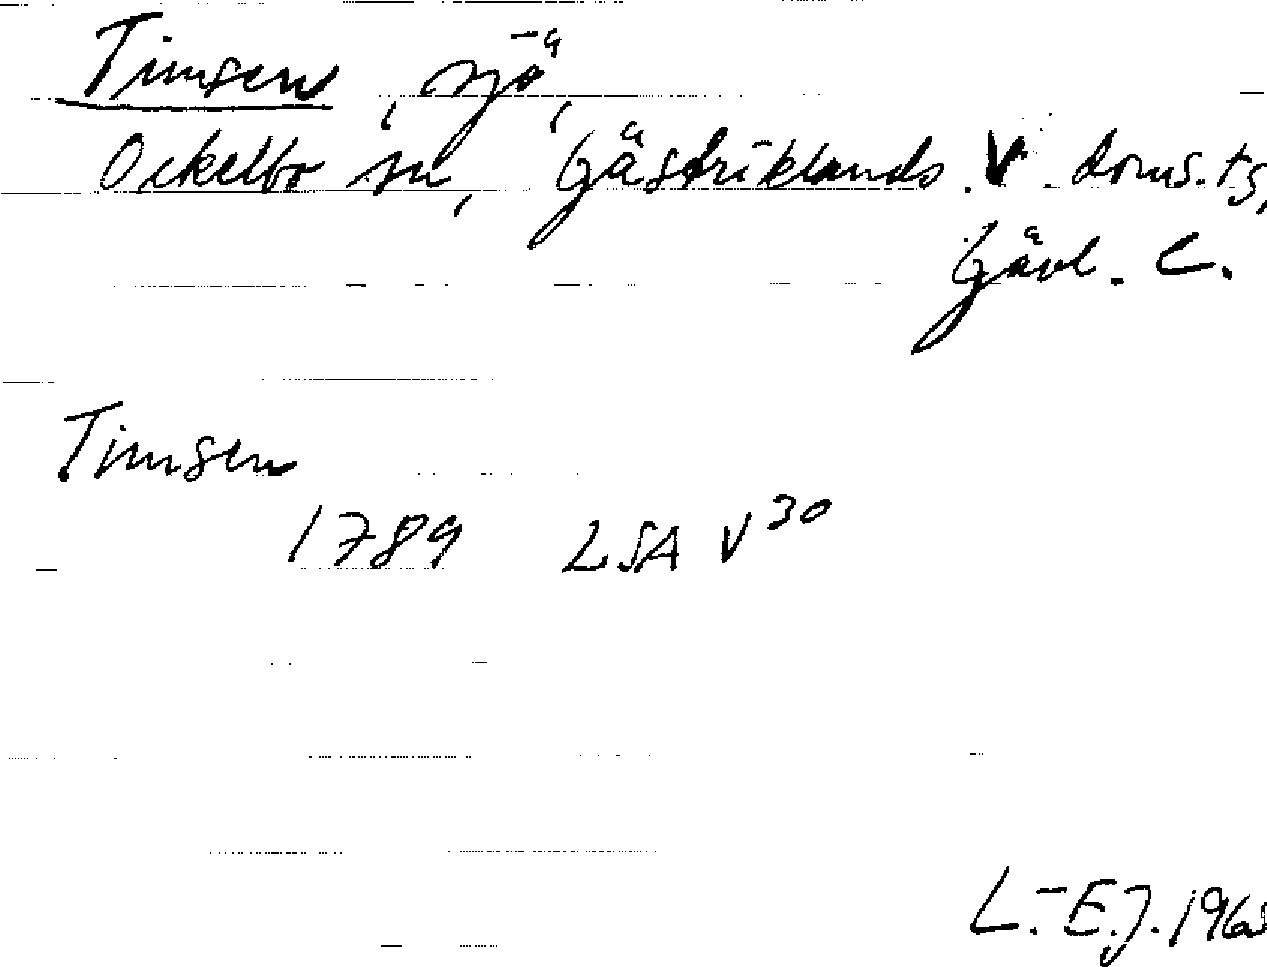 Timsen, sjö,
Ockelbo sn, Gästriklands V. doms.tg,
Gävl. L.
Timsen
1789 LSA V30
L.-E.J. 1965